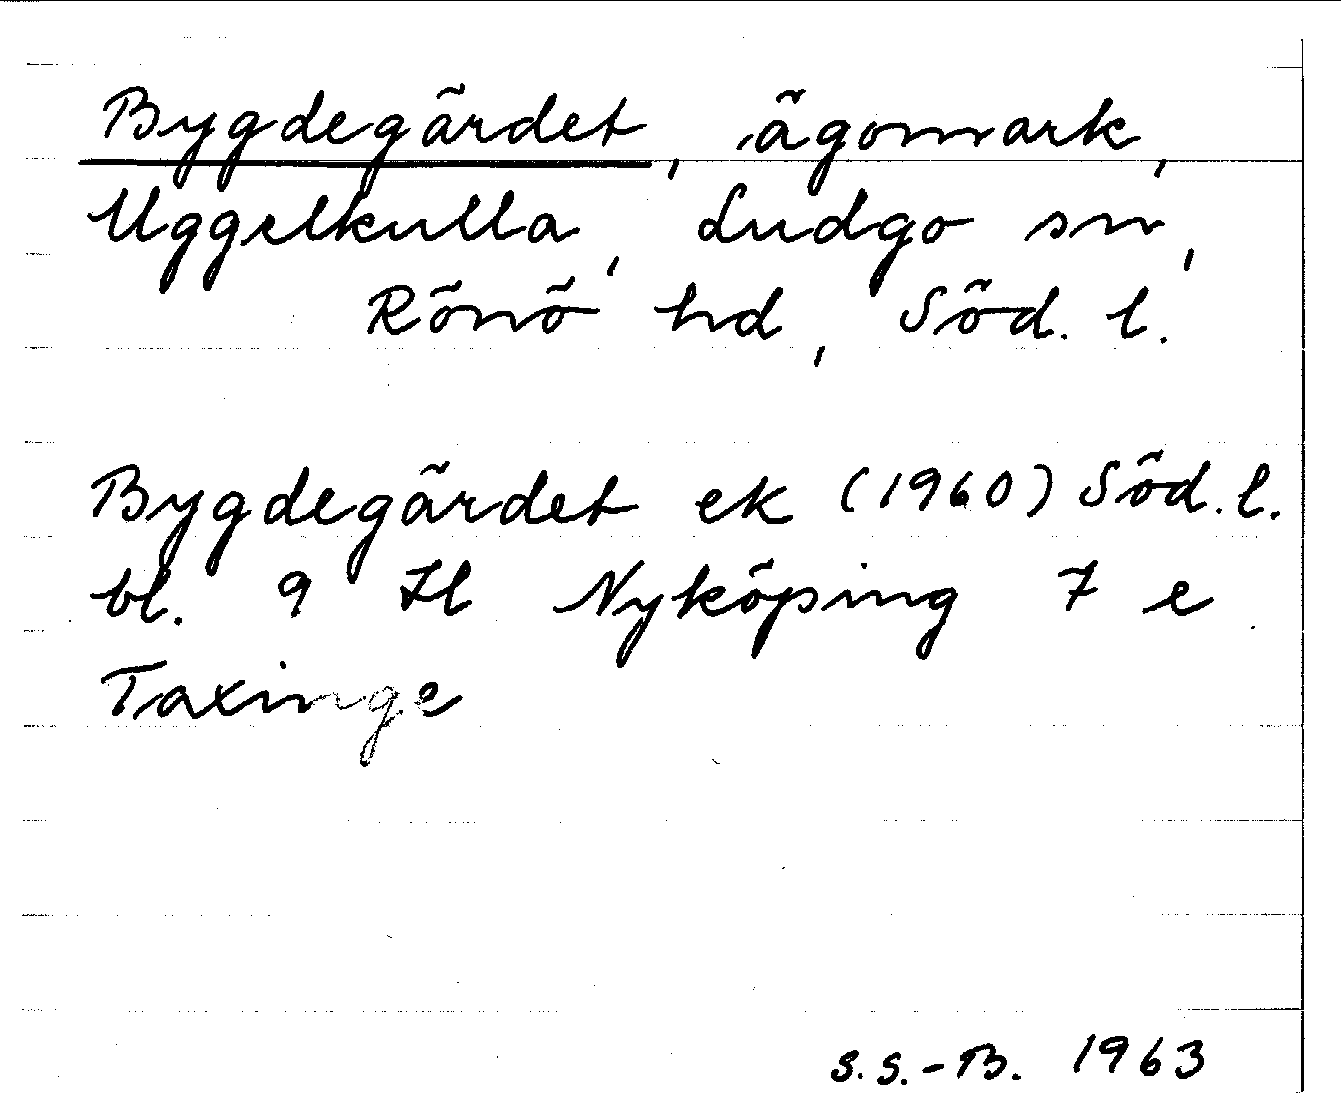 Bygdegärdet, ägomark,
Uggelkulla, Ludgo sn,
Rönö hd, Söd. l.
Bygdegärdet ek (1960) Söd. l.
bl. 9 Il Nyköping 7 e
Taxinge
S.S.-B. 1963